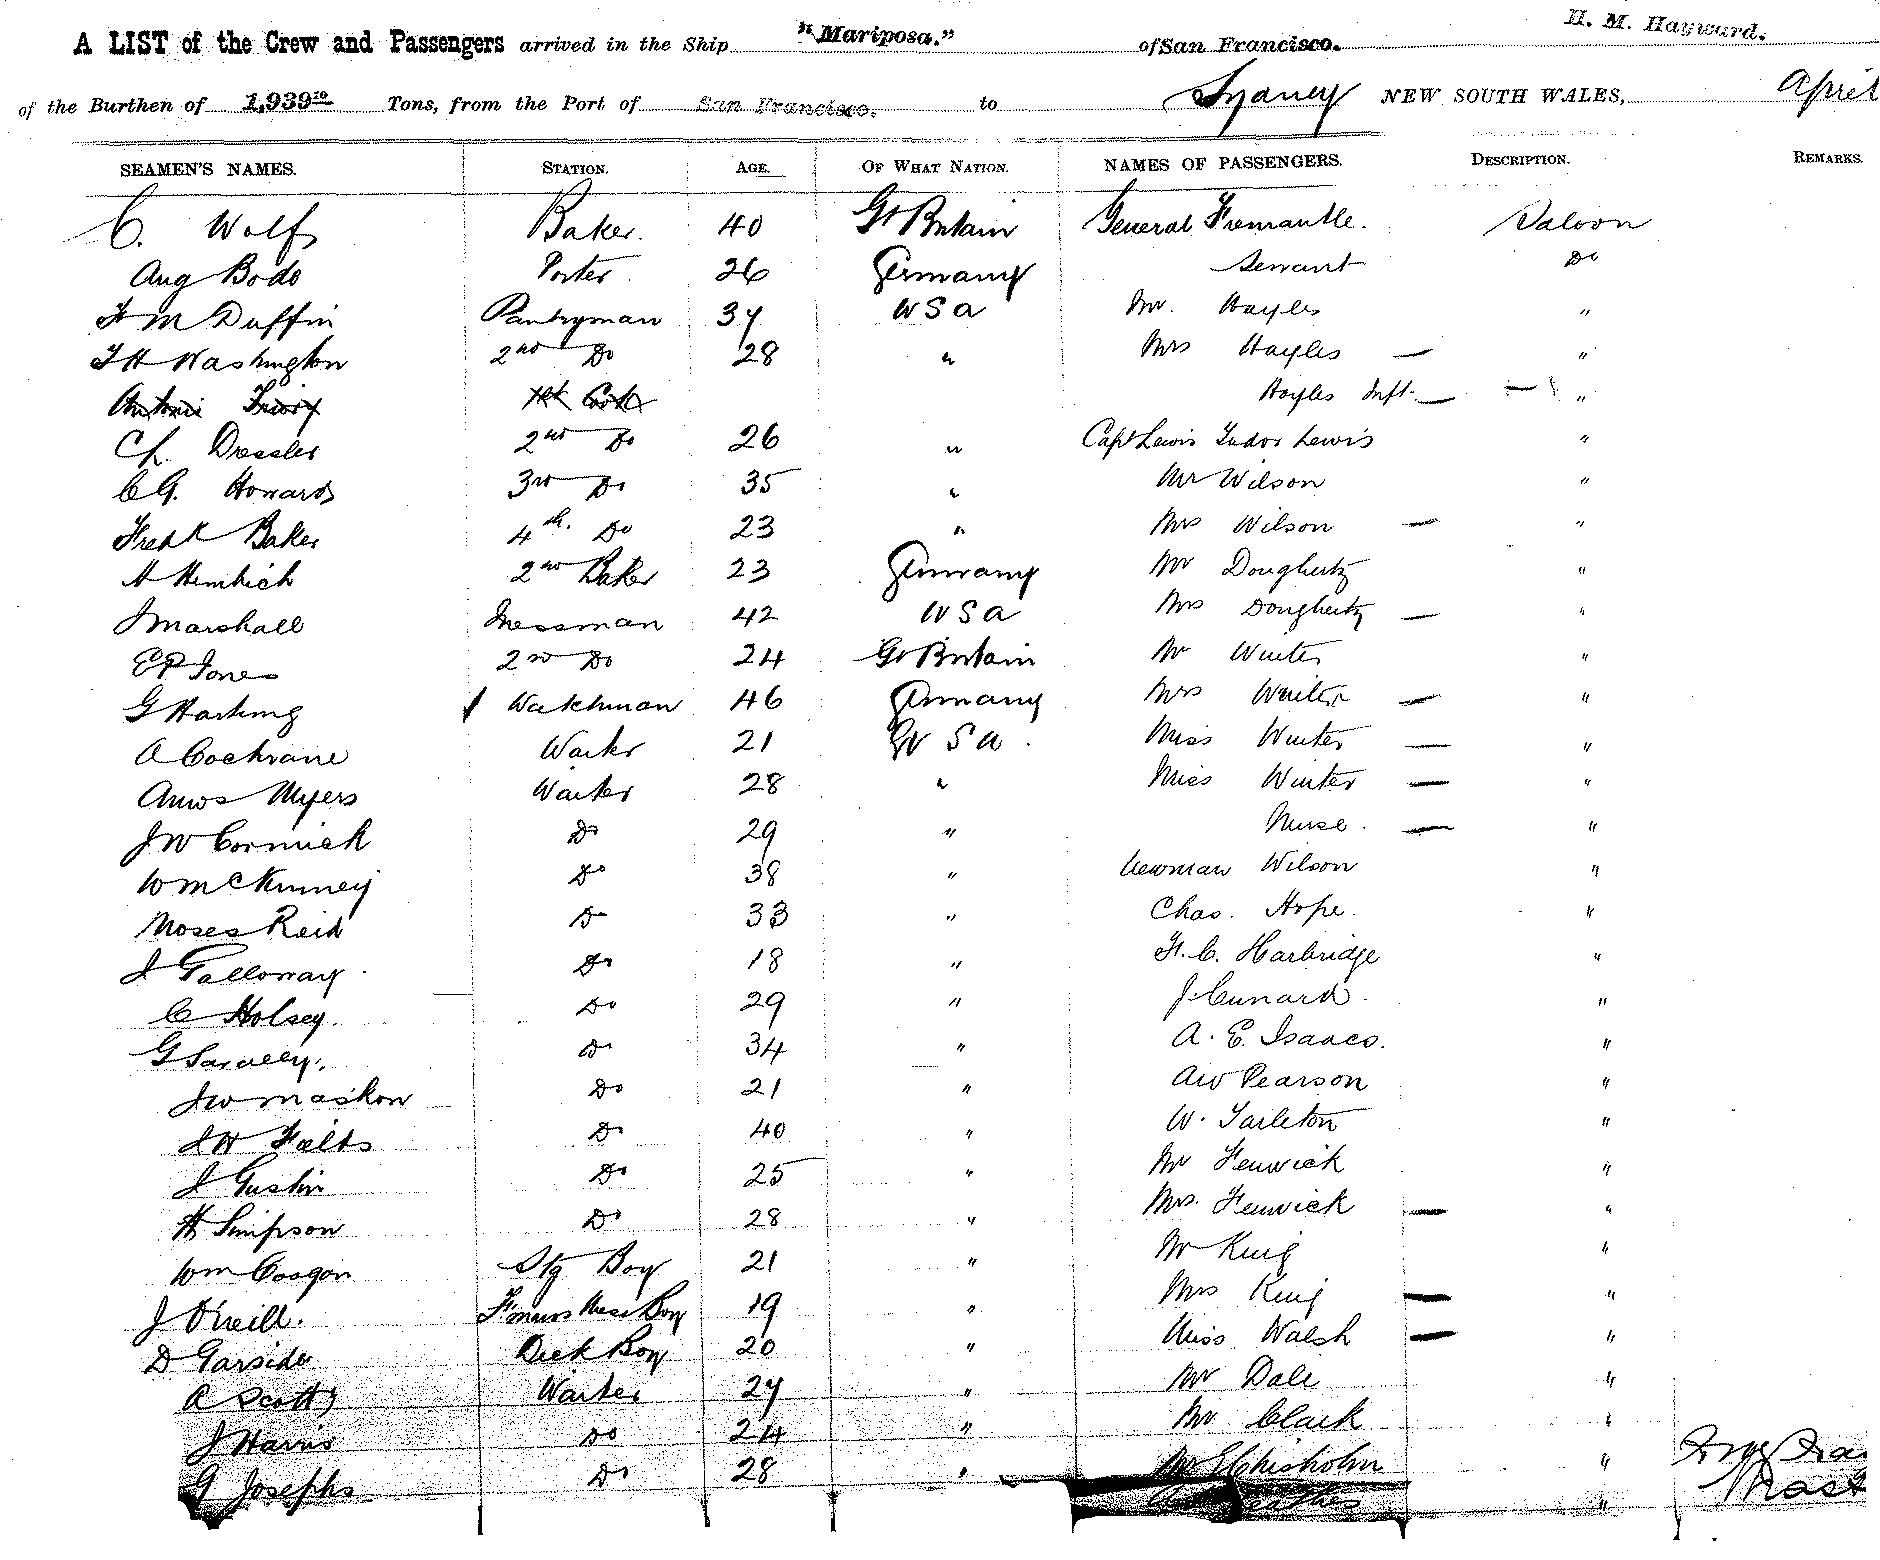 H. M. Hayward.
A LIST of the Crew and Passengers arrived in the Ship "Mariposa." of San Francisco.
of the Burthen of 1,939 Tons, from the Port of San Francisco. to Sydney NEW SOUTH WALES, April
SEAMEN'S NAMES. STATION. AGE. OF WHAT NATION. NAMES OF PASSENGERS. DESCRIPTION. REMARKS.
C. Wolf Baker. 40 Gt Britain General Fremantle. Saloon
Aug Bode Porter 26 Germany Servant Do
M Duffin Pantryman 37 U S a Mr. Hayles "
Washington 2nd Do 28 " Mrs Hayles — "
Antonio 1st Cook Hayles Inft. — — "
Ch Dressler 2nd Do 26 " Capt Lewis Tudor Lewis "
C G. Howard 3rd Do 35 " Mr Wilson "
Fredk Baker 4th. Do 23 " Mrs Wilson — "
2nd Baker 23 Germany Mr Dougherty "
J Marshall Messman 42 U S a Mrs Dougherty — "
E P Jones 2nd Do 24 Gt Britain Mr Winter "
G Hartung Watchman 46 Germany Mrs Winter — "
A Cochrane Waiter 21 U S a. Miss Winter — "
Amos Myers Waiter 28 " Miss Winter — "
J W Cormick Do 29 " Nurse. — "
W McKinney Do 38 " Newman Wilson "
Moses Reid Do 33 " Chas. Hope. "
J Galloway Do 18 " F. C. Harbridge "
C Holsey. Do 29 " J. Cunard. "
G Do 34 " A. E. Isaacs. "
J W Maskon Do 21 " A W Pearson "
J H Felts Do 40 " W. Tarleton "
J Gustin Do 25 " Mr Fenwick "
H Simpson Do 28 " Mrs. Fenwick — "
Wm Cosgon Stg Boy 21 " Mr King "
J O'Neill. Firemens Mess Boy 19 " Mrs King — "
D Garside Deck Boy 20 " Miss Walsh — "
A Scott Waiter 27 " Mr Dale "
J Harris Do 24 " Mr Clark "
G Josephs Do 28 " Mr Chisholm "
"